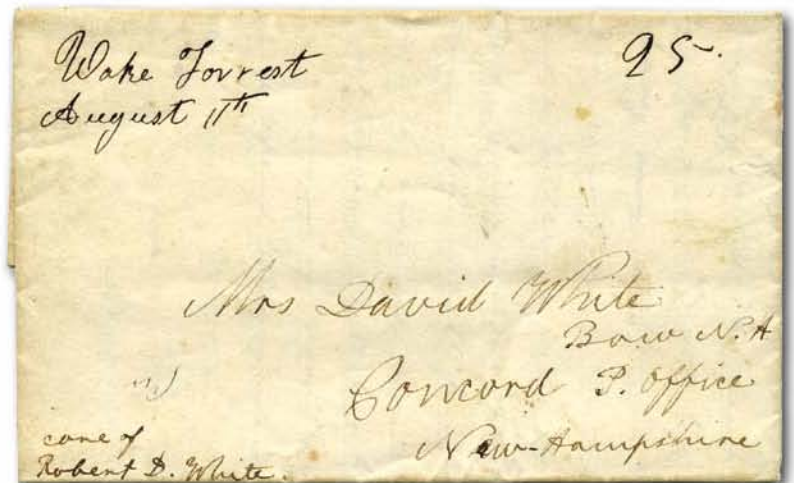 Wake Forrest
August 11th
25.
Mrs David White
Bow N.H
Concord P. Office
New-Hampshire
care of
Robert D. White.